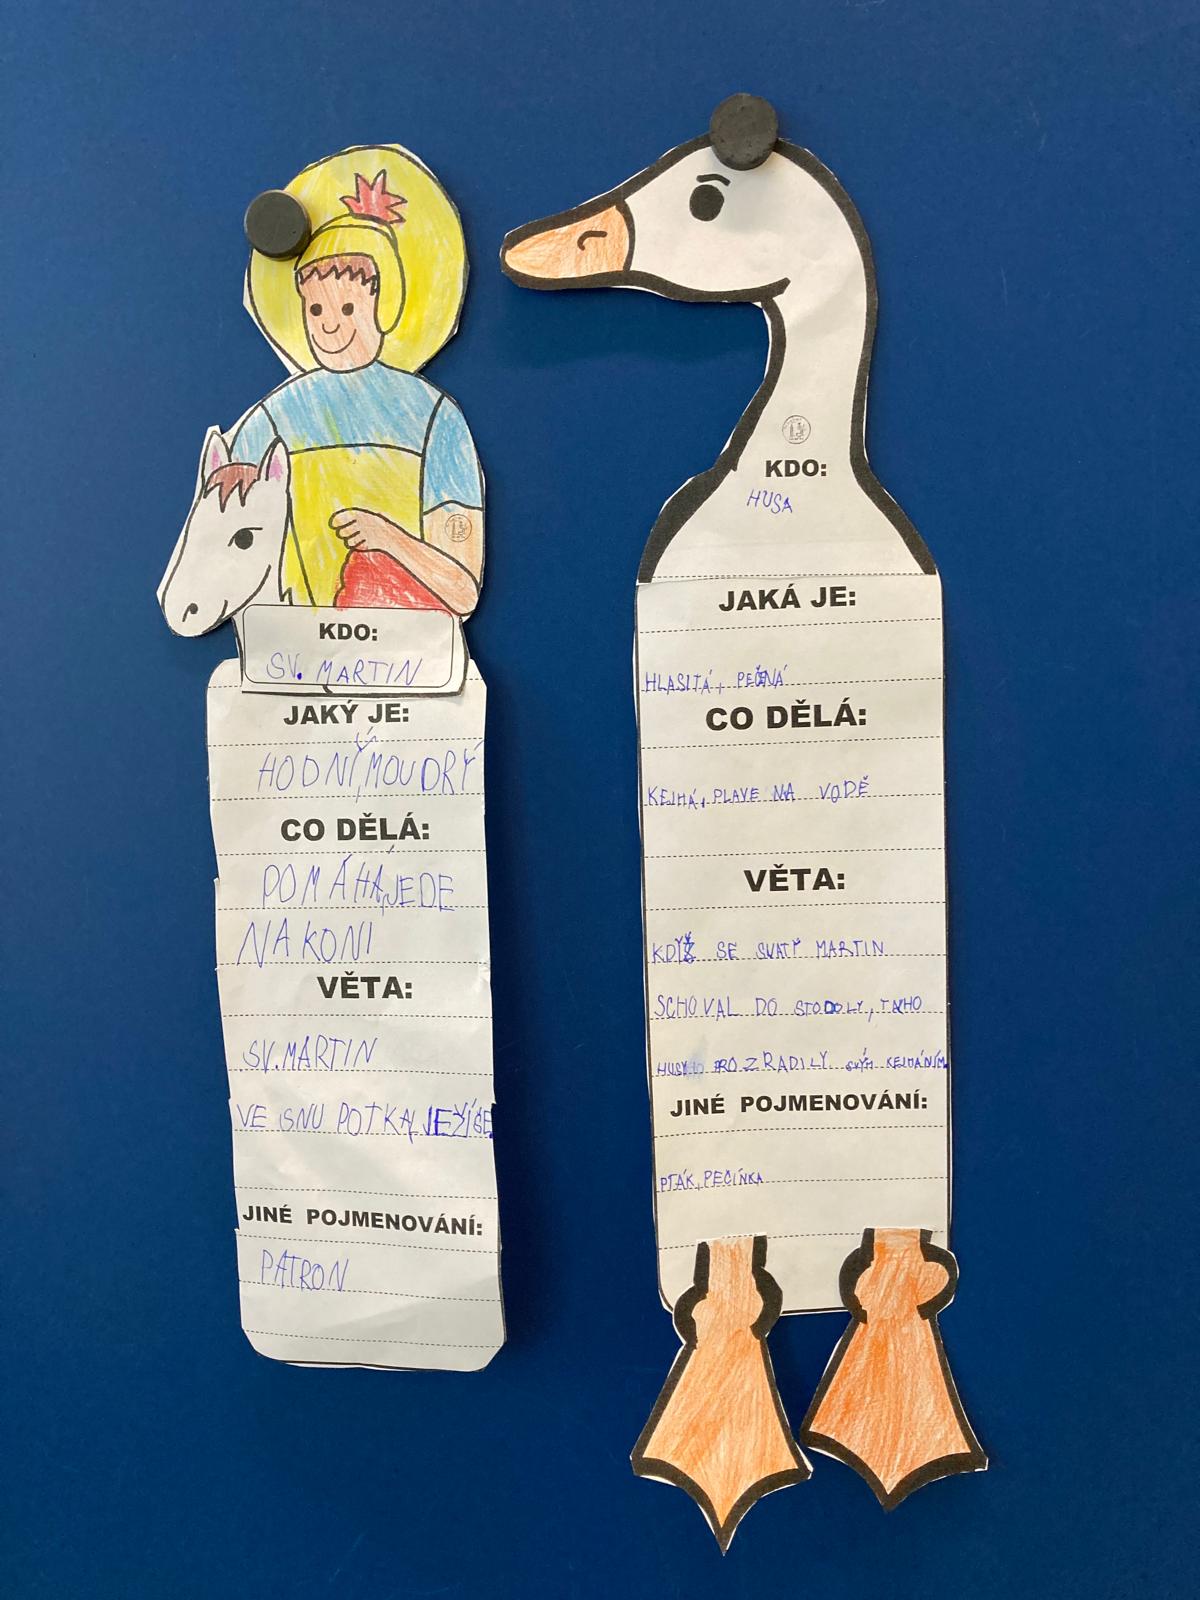 KDO:
SV. MARTIN
JAKÝ JE:
HODNÝ, MOUDRÝ
CO DĚLÁ:
POMÁHÁ, JEDE
NA KONI
VĚTA:
SV. MARTIN
VE SNU POTKAL JEŽÍŠE.
JINÉ POJMENOVÁNÍ:
PATRON
KDO:
HUSA
JAKÁ JE:
HLASITÁ, PEČENÁ
CO DĚLÁ:
KEJHÁ, PLAVE NA VODĚ
VĚTA:
KDYŽ SE SVATÝ MARTIN
SCHOVAL DO STODOLY, TAK HO
HUSY PROZRADILY SVÝM KEJHÁNÍM
JINÉ POJMENOVÁNÍ:
PTÁK, PEČÍNKA